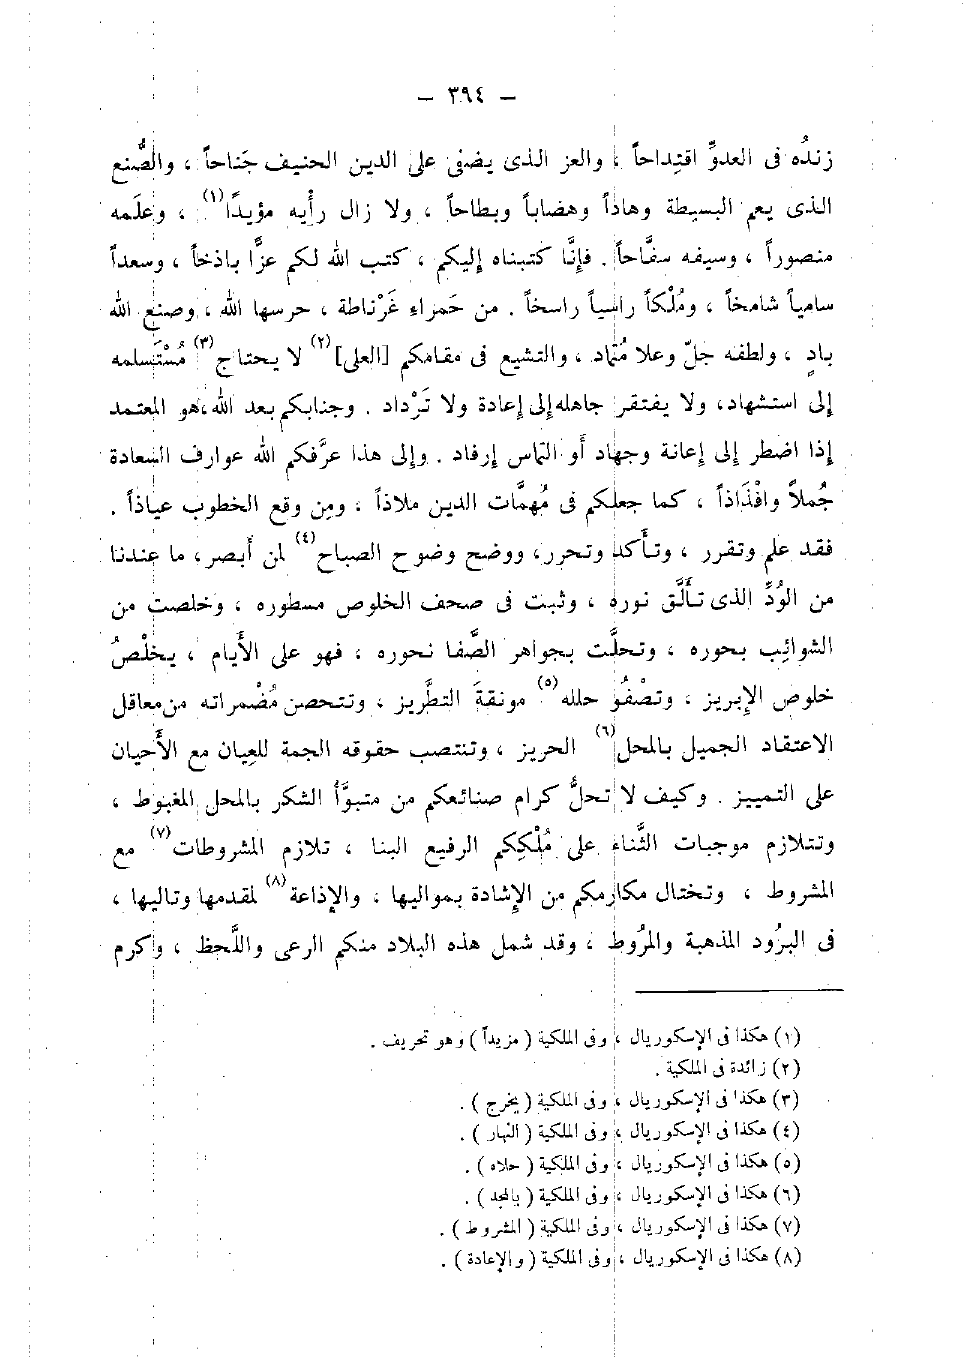 — ٣٩٤ —
زندُه فى العدوِّ اقتِداحاً ، والعز الذى يضفى على الدين الحنيف جَناحاً ، والصُّنع
الذى يعم البسيطة وهاداً وهضاباً وبطاحاً ، ولا زال رأْيه مؤيدًا(١) ، وعلَمه
منصوراً ، وسيفه سفَّاحاً . فإنَّا كتبناه إليكم ، كتب الله لكم عزًّا باذخاً ، وسعداً
سامياً شامخاً ، ومُلْكاً راسياً راسخاً . من حَمراءِ غَرْناطة ، حرسها الله ، وصنع الله
بادٍ ، ولطفه جلّ وعلا مُتماد ، والتشيع فى مقامكم [العلى](٢) لا يحتاج(٣) مُسْتَسلمه
إلى استشهاد، ولا يفتقر جاهله إلى إعادة ولا تَرْداد . وجنابكم بعد الله، هو المعتمد
إذا اضطر إلى إعانة وجهاد أو التماس إرفاد . وإلى هذا عرَّفكم الله عوارف السعادة
جُملاً وافْذَاذاً ، كما جعلكم فى مُهمَّات الدين ملاذاً ، ومِن وقع الخطوب عياذاً .
فقد علم وتقرر ، وتأَكد وتحرر، ووضح وضوح الصباح(٤) لمن أبصر، ما عندنا
من الوُدِّ الذى تأَلَّق نوره ، وثبت فى صحف الخلوص مسطوره ، وخلصت من
الشوائِب بحوره ، وتحلَّت بجواهر الصَّفا نحوره ، فهو على الأَيام ، يخلْصُ
خلوص الإبريز ، وتصْفُو حلله(٥) مونقةَ التطَّريز ، وتتحصن مُضْمراته من معاقل
الاعتقاد الجميل بالمحل(٦) الحريز ، وتنتصب حقوقه الجمة للعِيان مع الأَحيان
على التمييز . وكيف لا تحلُّ كرام صنائعكم من متبوَّأ الشكر بالمحل المغبوط ،
وتتلازم موجبات الثَّناء على مُلْكِكم الرفيع البنا ، تلازم المشروطات(٧) مع
المشروط ، وتختال مكارمكم من الإشادة بمواليها ، والإذاعة(٨) لمقدمها وتاليها ،
فى البرُود المذهبة والمرُوط ، وقد شمل هذه البلاد منكم الرعى واللَّحظ ، وأكرم
(١) هكذا فى الإسكوريال ، وفى الملكية ( مزيداً ) وهو تحريف .
(٢) زائدة فى الملكية .
(٣) هكذا فى الإسكوريال ، وفى الملكية ( يخرج ) .
(٤) هكذا فى الإسكوريال ، وفى الملكية ( النهار ) .
(٥) هكذا فى الإسكوريال ، وفى الملكية ( حلاه ) .
(٦) هكذا فى الإسكوريال ، وفى الملكية ( بالمجد ) .
(٧) هكذا فى الإسكوريال ، وفى الملكية ( المشروط ) .
(٨) هكذا فى الإسكوريال ، وفى الملكية ( والإعادة ) .